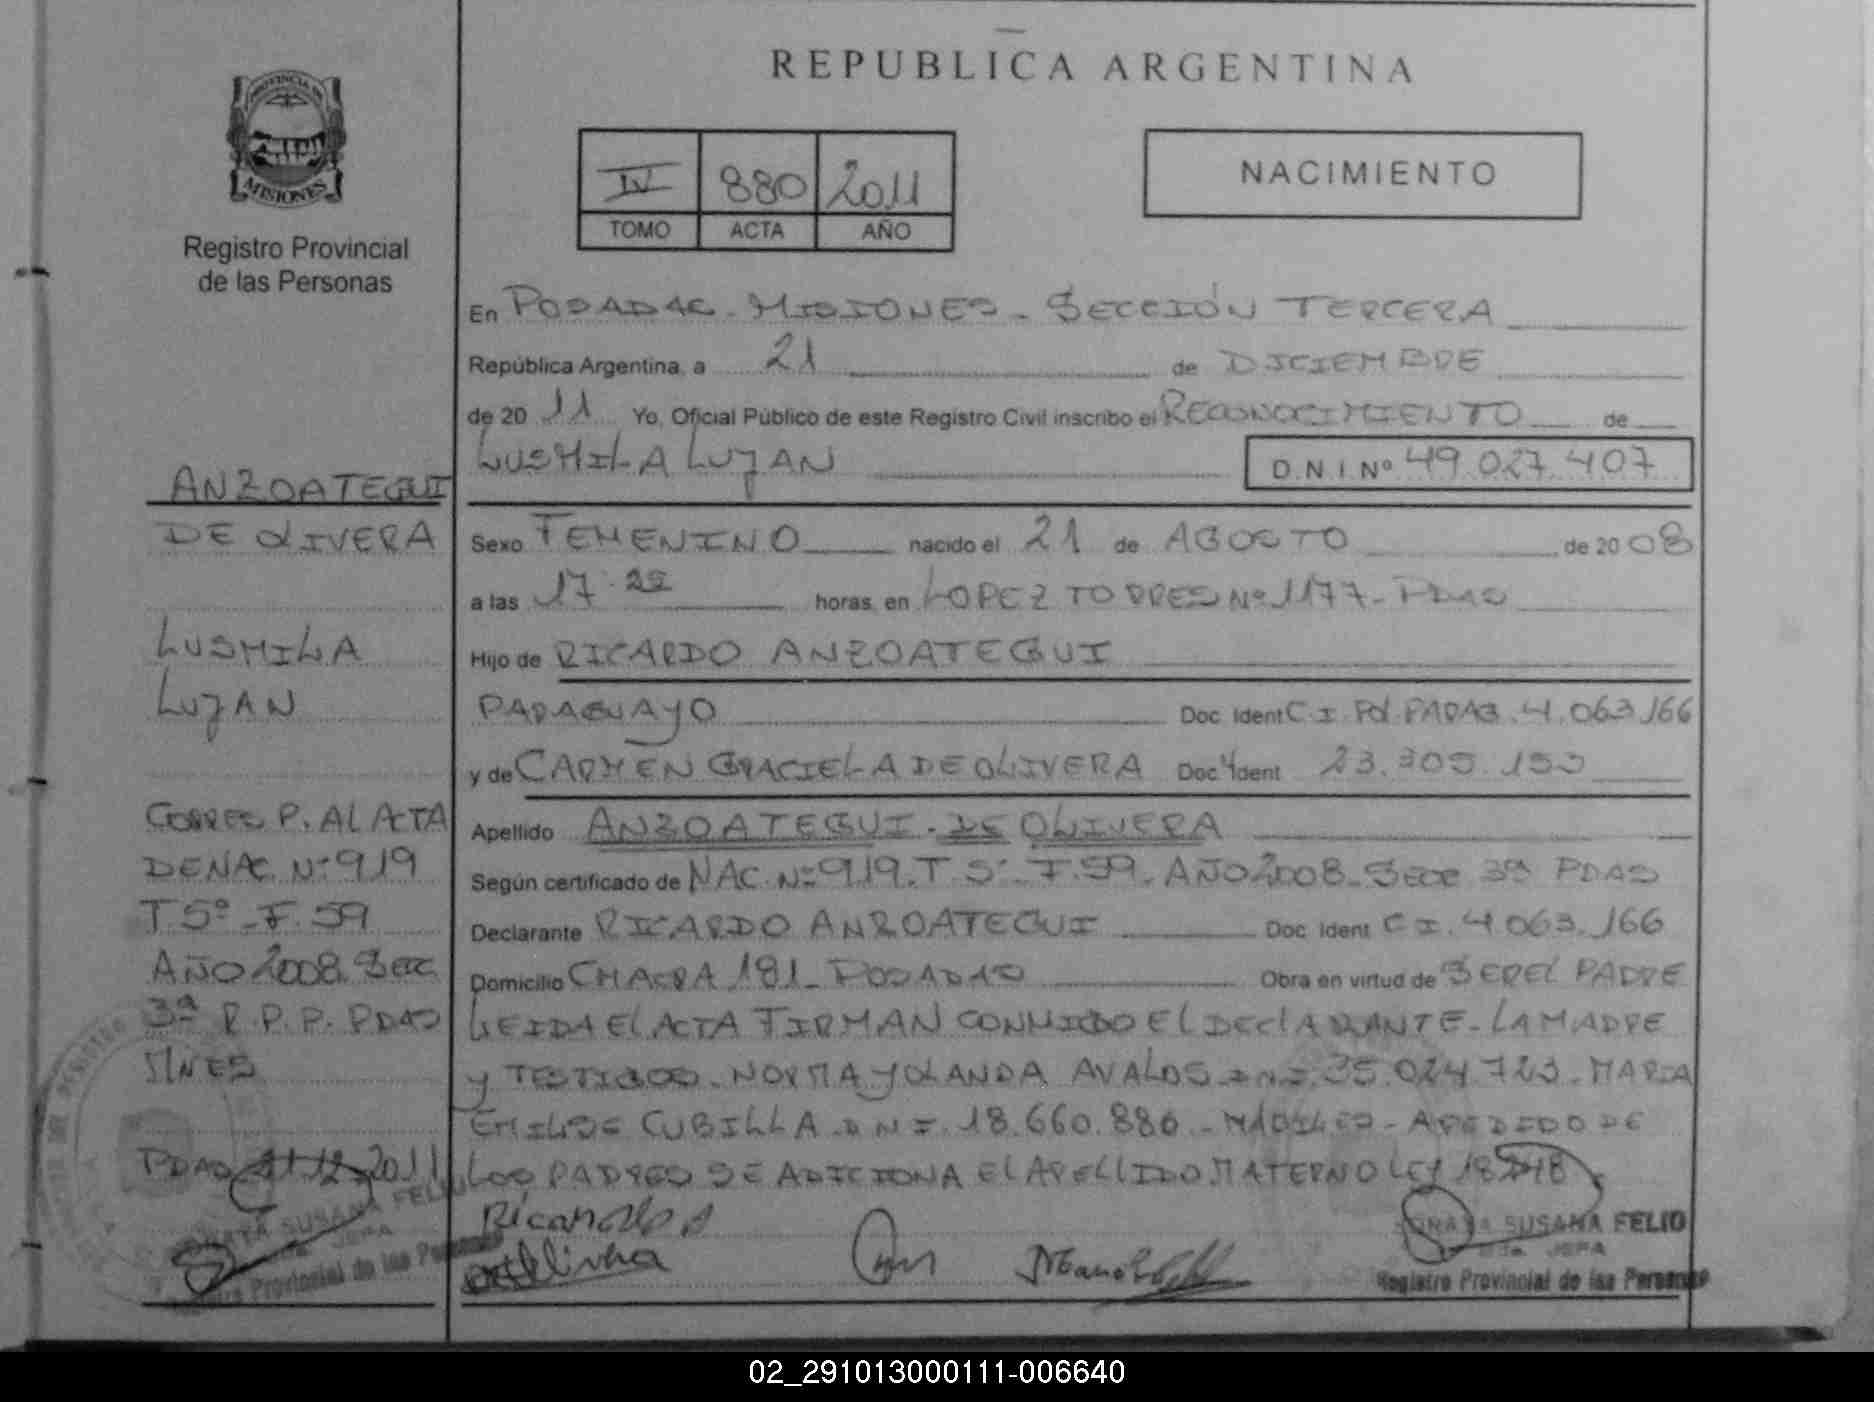 REPUBLICA ARGENTINA
PROVINCIA DE
MISIONES
Registro Provincial
de las Personas
IV 880 2011
TOMO ACTA AÑO
NACIMIENTO
En POSADAS - MISIONES - SECCIÓN TERCERA
República Argentina, a 21 de DICIEMBRE
de 2011 Yo, Oficial Público de este Registro Civil inscribo el RECONOCIMIENTO de
LUSMILA LUJAN D.N.I.Nº 49.027.407
Sexo FEMENINO nacido el 21 de AGOSTO de 2008
a las 17: horas, en LOPEZ TORRES Nº 1177 - PDAS
Hijo de RICARDO ANZOATEGUI
PARAGUAYO Doc Ident C.I. Pol. PARAG. 4.063.166
y de CARMEN GRACIELA DE OLIVERA Doc Ident 23.305.153
Apellido ANZOATEGUI - DE OLIVERA
Según certificado de NAC. Nº 919 - T. 5º - F. 59 - AÑO 2008 - SECC 3ª PDAS
Declarante RICARDO ANZOATEGUI Doc Ident C.I. 4.063.166
Domicilio CHACRA 181 - POSADAS Obra en virtud de SER EL PADRE
LEIDA EL ACTA FIRMAN CONMIGO EL DECLARANTE - LA MADRE
Y TESTIGOS - NORMA YOLANDA AVALOS D.N.I. 35.024.723 - MARIA
EMILSE CUBILLA D.N.I. 18.660.886 - HABILES - A PEDIDO DE
LOS PADRES SE ADICIONA EL APELLIDO MATERNO LEY 18248
Ricardo A
SUSANA FELIO
JEFA
Registro Provincial de las Personas
ANZOATEGUI
DE OLIVERA
LUSMILA
LUJAN
CORRESP. AL ACTA
DE NAC. Nº 919
T. 5º - F. 59
AÑO 2008. SECC
3ª R.P.P. PDAS
MNES
PDAS 21-12-2011
SUSANA FELIO
JEFA
Provincial de las Personas
02_291013000111-006640